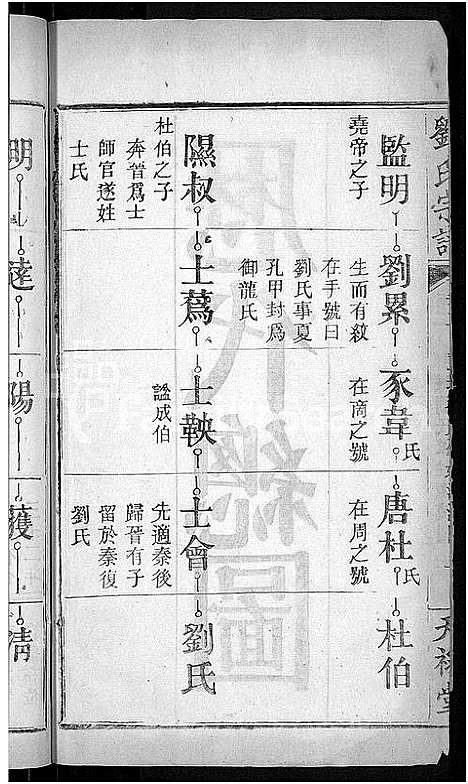 劉氏宗譜
天祿堂
監明
堯帝之子
劉累
生而有紋
在手號曰
劉氏事夏
孔甲封爲
御龍氏
豕韋氏
在商之號
唐杜氏
在周之號
杜伯
隰叔
杜伯之子
奔晉爲士
師官遂姓
士氏
士蒍
士鞅
謚成伯
士會
先適秦後
歸晉有子
留於秦復
劉氏
劉氏
歷代總圖
明
遠
陽
獲
清